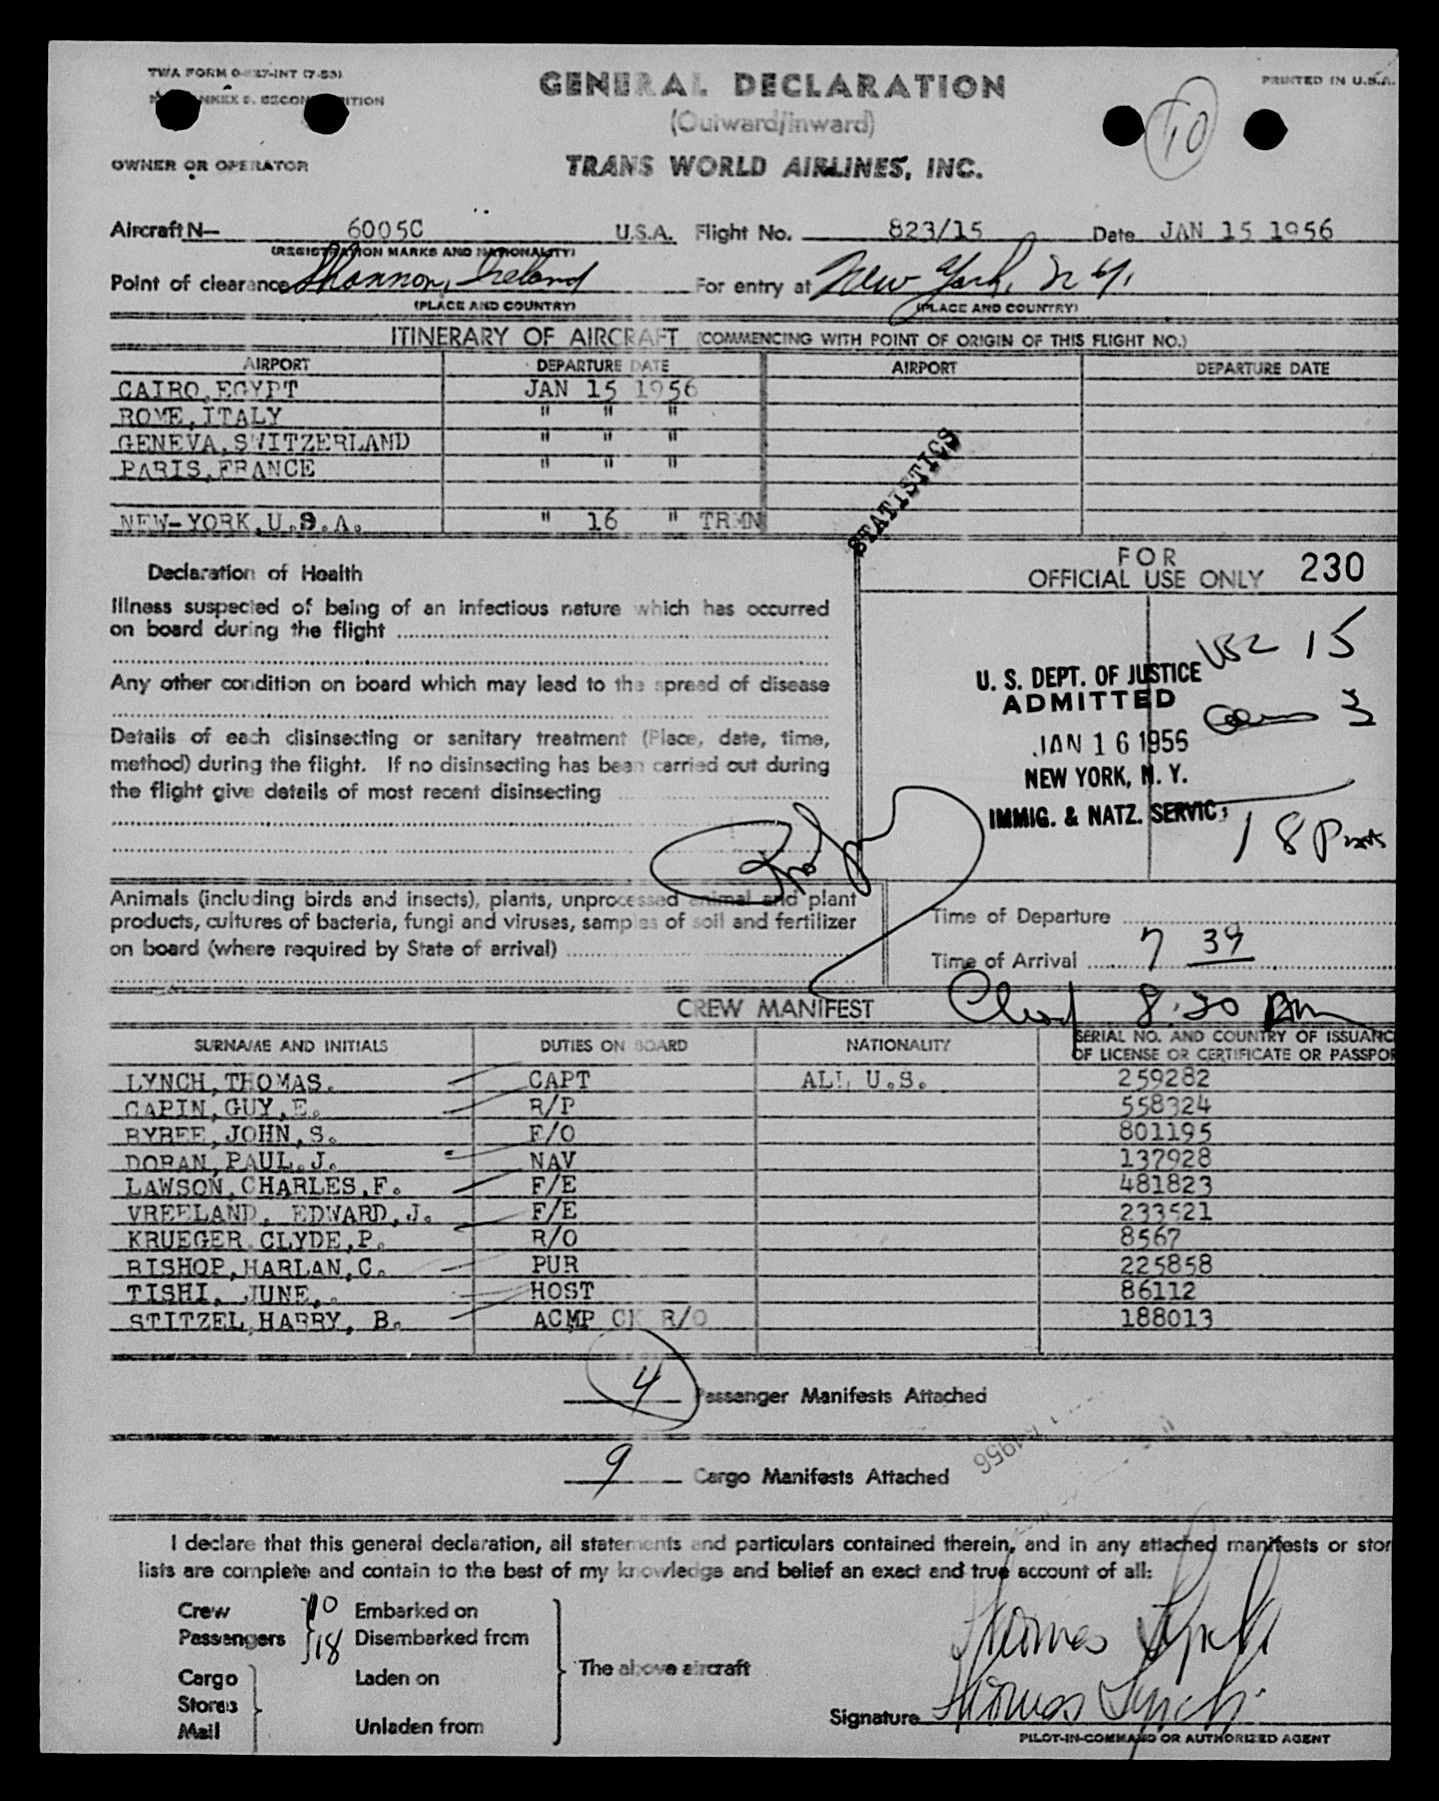 TWA FORM 0- 27-INT (7-53)
PRINTED IN U.S.A.
GENERAL DECLARATION
(Outward/Inward)
10
OWNER OR OPERATOR
TRANS WORLD AIRLINES, INC.
Aircraft N— 6005C U.S.A. Flight No. 823/15 Date JAN 15 1956
(REGISTRATION MARKS AND NATIONALITY)
Point of clearance Shannon, Ireland For entry at New York, N.Y.
(PLACE AND COUNTRY) (PLACE AND COUNTRY)
ITINERARY OF AIRCRAFT (COMMENCING WITH POINT OF ORIGIN OF THIS FLIGHT NO.)
AIRPORT DEPARTURE DATE AIRPORT DEPARTURE DATE
CAIRO,EGYPT JAN 15 1956
ROME,ITALY " " "
GENEVA,SWITZERLAND " " "
PARIS,FRANCE " " "
STATISTICS
NEW-YORK,U.S.A. " 16 " TRMN
FOR
OFFICIAL USE ONLY 230
Declaration of Health
Illness suspected of being of an infectious nature which has occurred
on board during the flight
Any other condition on board which may lead to the spread of disease
Details of each disinsecting or sanitary treatment (Place, date, time,
method) during the flight. If no disinsecting has been carried out during
the flight give details of most recent disinsecting
15
U. S. DEPT. OF JUSTICE
ADMITTED
3
JAN 16 1956
NEW YORK, N. Y.
IMMIG. & NATZ. SERVIC
18
Animals (including birds and insects), plants, unprocessed animal and plant
products, cultures of bacteria, fungi and viruses, samples of soil and fertilizer
on board (where required by State of arrival)
Time of Departure
Time of Arrival 7 39
8:20
CREW MANIFEST
SURNAME AND INITIALS DUTIES ON BOARD NATIONALITY SERIAL NO. AND COUNTRY OF ISSUANC
OF LICENSE OR CERTIFICATE OR PASSPO
LYNCH,THOMAS. CAPT ALL U.S. 259282
CAPIN,GUY,E. R/P 558324
BYREE,JOHN,S. F/O 801195
DORAN,PAUL.J. NAV 137928
LAWSON,CHARLES,F. F/E 481823
VREELAND, EDWARD,J. F/E 233521
KRUEGER CLYDE,P. R/O 8567
BISHOP,HARLAN,C. PUR 225858
TISHI, JUNE,. HOST 86112
STITZEL HARRY, B. ACMP CK R/O 188013
4 Passenger Manifests Attached
9 Cargo Manifests Attached
1956
I declare that this general declaration, all statements and particulars contained therein, and in any attached manifests or stor
lists are complete and contain to the best of my knowledge and belief an exact and true account of all:
Crew 10 Embarked on
Passengers 18 Disembarked from
Cargo Laden on
Stores
Mail Unladen from
The above aircraft
Thomas Lynch
Signature Thomas Lynch
PILOT-IN-COMMAND OR AUTHORIZED AGENT